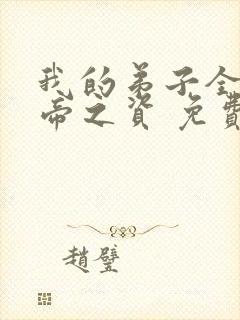 我的弟子全
帝之資 免費
趙璧